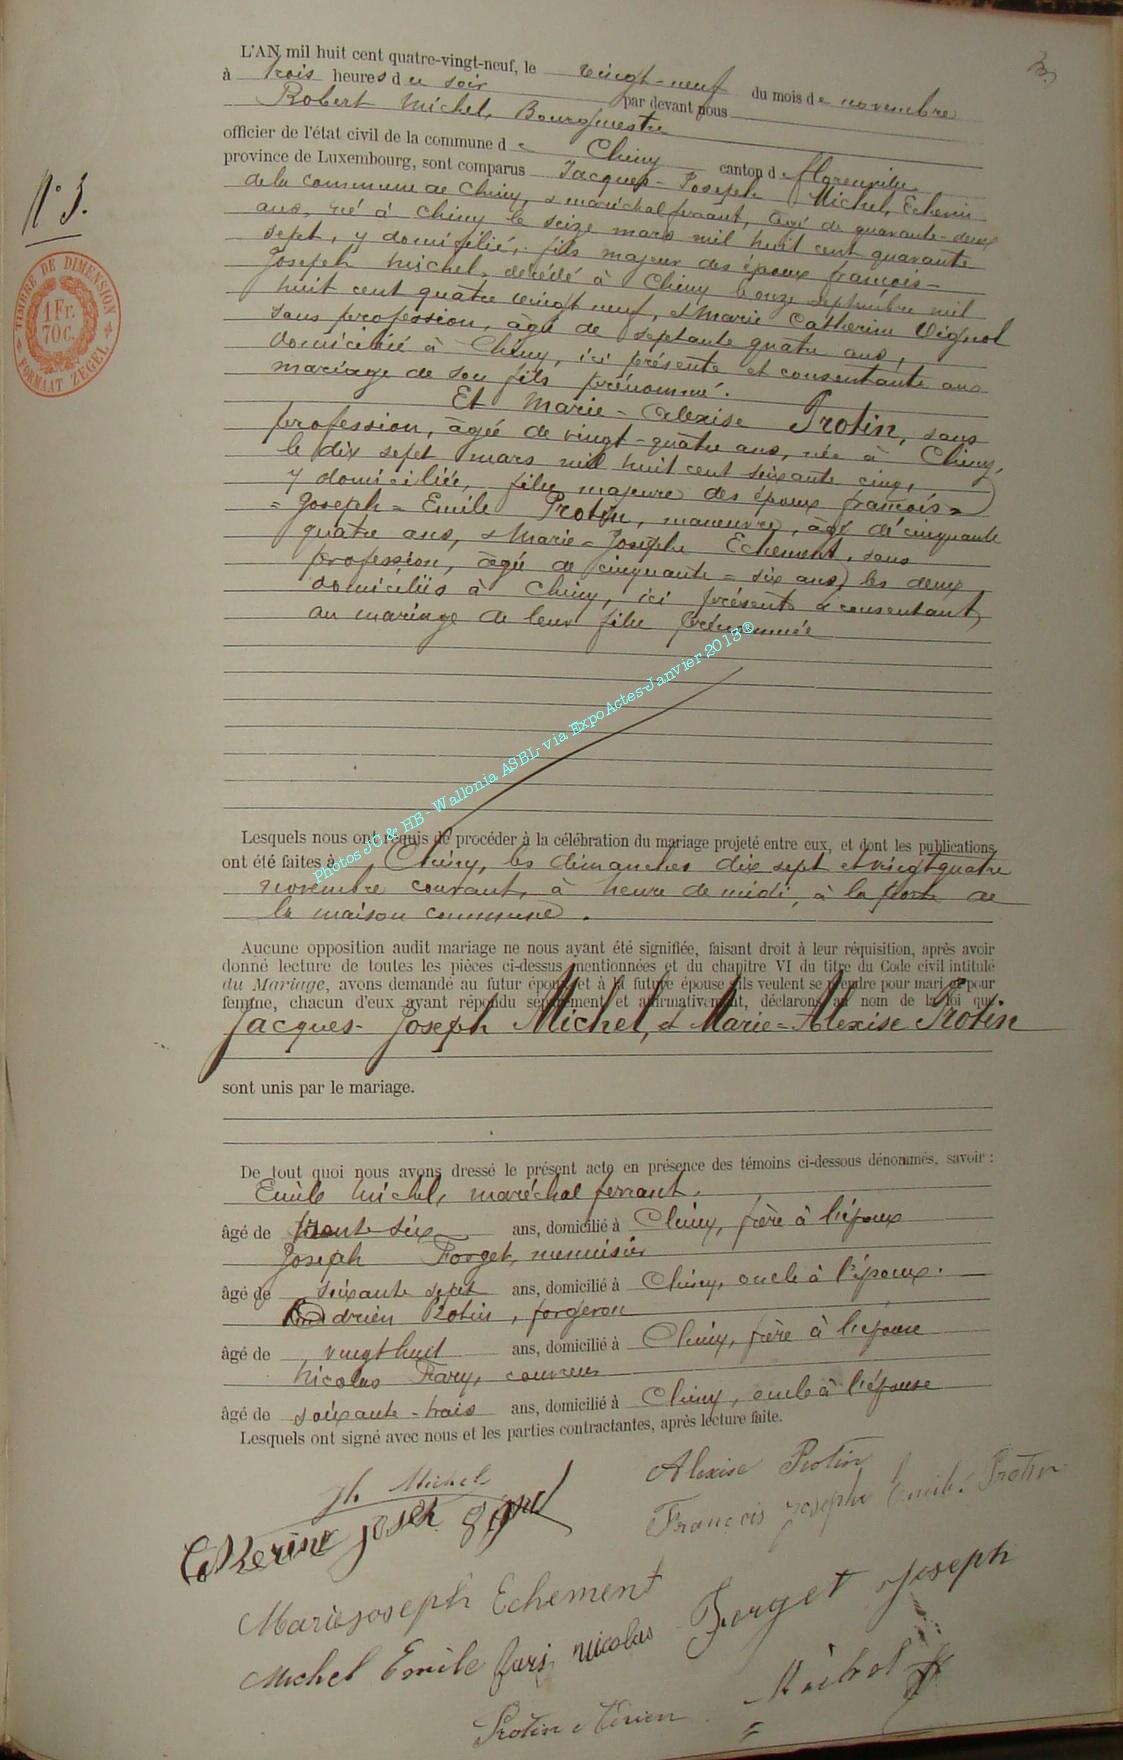 L'AN mil huit cent quatre-vingt-neuf, le vingt-neuf du mois de novembre
à trois heures du soir par devant nous
Robert Michel, Bourgmestre
officier de l'état civil de la commune de Chiny canton de florenville
province de Luxembourg, sont comparus Jacques-Joseph Michel, Echevin
de la commune de Chiny, & maréchal ferrant, âgé de quarante-deux
ans, né à Chiny le seize mars mil huit cent quarante
sept, y domicilié, fils majeur des époux françois-
Joseph Michel, décédé à Chiny le onze septembre mil
huit cent quatre vingt neuf, & Marie Catherine Vignol
sans profession, âgée de septante quatre ans,
domiciliée à Chiny, ici présente et consentante au
mariage de son fils prénommé.
Et Marie-Alexise Protin, sans
profession, âgée de vingt-quatre ans, née à Chiny,
le dix sept mars mil huit cent soixante cinq,
y domiciliée, fille majeure des époux françois=
=Joseph=Emile Protin, manœuvre, âgé de cinquante
quatre ans, & Marie=Josephe Echement, sans
profession, âgée de cinquante=six ans, les deux
domiciliés à Chiny, ici présents & consentant
au mariage de leur fille prénommée
Photos JC & HB - Wallonia ASBL via ExpoActes-Janvier 2013®
N° 3.
TIMBRE DE DIMENSION
1 Fr.
70c.
FORMAAT ZEGEL
Lesquels nous ont requis de procéder à la célébration du mariage projeté entre eux, et dont les publications
ont été faites à Chiny, les dimanches dix sept et vingt quatre
novembre courant, à heure de midi, à la porte de
la maison commune.
Aucune opposition audit mariage ne nous ayant été signifiée, faisant droit à leur réquisition, après avoir
donné lecture de toutes les pièces ci-dessus mentionnées et du chapitre VI du titre du Code civil intitulé
du Mariage, avons demandé au futur époux et à la future épouse s'ils veulent se prendre pour mari et pour
femme, chacun d'eux ayant répondu séparément et affirmativement, déclarons au nom de la loi que
Jacques-Joseph Michel, & Marie=Alexise Protin
sont unis par le mariage.
De tout quoi nous avons dressé le présent acte en présence des témoins ci-dessous dénommés, savoir :
Emile Michel, maréchal ferrant,
âgé de trente six ans, domicilié à Chiny, frère à l'époux
Joseph Forget, menuisier
âgé de soixante sept ans, domicilié à Chiny, oncle à l'époux.
Adrien Protin, forgeron
âgé de vingt huit ans, domicilié à Chiny, frère à l'épouse
Nicolas Fary, couvreur
âgé de soixante-trois ans, domicilié à Chiny, oncle à l'épouse
Lesquels ont signé avec nous et les parties contractantes, après lecture faite.
Jh Michel
Alexise Protin
Catherine Joseph
François Joseph Emile Protin
Mariejoseph Echement
Forget Joseph
Michel Emile
nicolas
Protin